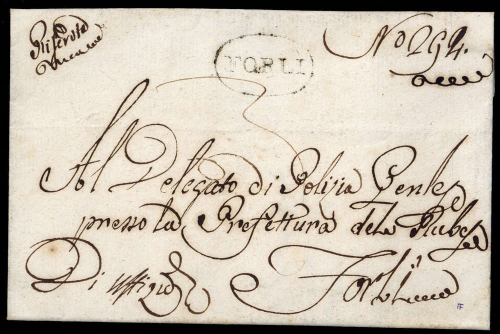 Riservata
FORLI
No 294.
Al Delegato di Polizia Genle
presso la Prefettura del Rub
Di Uffizio
Forlì